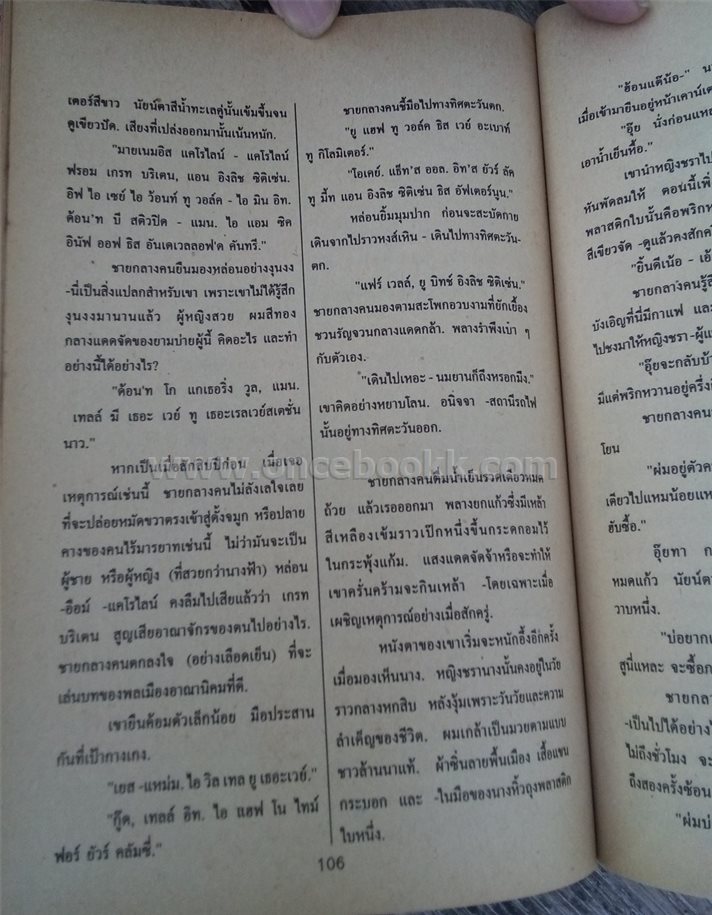 เตอร์สีขาว นัยน์ตาสีน้ำทะเลคู่นั้นเข้มขึ้นจน
ดูเขียวปัด. เสียงที่เปล่งออกมานั้นเน้นหนัก.
"มายเนมอิส แคโรไลน์ - แคโรไลน์
ฟรอม เกรท บริเตน, แอน อิงลิช ซิติเซ่น.
อิฟ ไอ เซย์ ไอ ว้อนท์ ทู วอล์ค - ไอ มีน อิท.
ด้อน'ท บี สติวปิด - แมน. ไอ แอม ซิค
อินัฟ ออฟ ธิส อันเดเวลลอฟ'ด คันทรี."
ชายกลางคนยืนมองหล่อนอย่างงุนงง
-นี่เป็นสิ่งแปลกสำหรับเขา เพราะเขาไม่ได้รู้สึก
งุนงงมานานแล้ว ผู้หญิงสวย ผมสีทอง
กลางแดดจัดของยามบ่ายผู้นี้ คิดอะไร และทำ
อย่างนี้ได้อย่างไร?
"ด้อน'ท โก แกเธอริ่ง วูล, แมน.
เทลล์ มี เธอะ เวย์ ทู เธอะเรลเวย์สเตชั่น
นาว."
หากเป็นเมื่อสักสิบปีก่อน เมื่อเจอ
เหตุการณ์เช่นนี้ ชายกลางคนไม่ลังเลใจเลย
ที่จะปล่อยหมัดขวาตรงเข้าสู่ดั้งจมูก หรือปลาย
คางของคนไร้มารยาทเช่นนี้ ไม่ว่ามันจะเป็น
ผู้ชาย หรือผู้หญิง (ที่สวยกว่านางฟ้า) หล่อน
-อืมอ์ -แคโรไลน์ คงลืมไปเสียแล้วว่า เกรท
บริเตน สูญเสียอาณาจักรของตนไปอย่างไร.
ชายกลางคนตกลงใจ (อย่างเลือดเย็น) ที่จะ
เล่นบทของพลเมืองอาณานิคมที่ดี.
เขายืนค้อมตัวเล็กน้อย มือประสาน
กันที่เป้ากางเกง.
"เยส -แหม่ม. ไอ วิล เทล ยู เธอะเวย์."
"กู๊ด, เทลล์ อิท. ไอ แฮฟ โน ไทม์
ฟอร์ ยัวร์ คลัมซี่."
ชายกลางคนชี้มือไปทางทิศตะวันตก.
"ยู แฮฟ ทู วอล์ค ธิส เวย์ อะเบาท์
ทู กิโลมิเตอร์."
"โอเคย์. แธ็ท'ส ออล. อิท'ส ยัวร์ ลัค
ทู มี้ท แอน อิงลิช ซิติเซ่น ธิส อัฟเตอร์นูน."
หล่อนยิ้มมุมปาก ก่อนจะสะบัดกาย
เดินจากไปราวหงส์เหิน - เดินไปทางทิศตะวัน-
ตก.
"แฟร์ เวลล์, ยู บิทช์ อิงลิช ซิติเซ่น."
ชายกลางคนมองตามสะโพกอวบงามที่ยักเยื้อง
ชวนรัญจวนกลางแดดกล้า. พลางรำพึงเบา ๆ
กับตัวเอง.
"เดินไปเหอะ - นมยานก็ถึงหรอกมึง."
เขาคิดอย่างหยาบโลน. อนิจจา -สถานีรถไฟ
นั้นอยู่ทางทิศตะวันออก.
www.oncebookk.com
ชายกลางคนดื่มน้ำเย็นรวดเดียวหมด
ถ้วย แล้วเรอออกมา พลางยกแก้วซึ่งมีเหล้า
สีเหลืองเข้มราวเป๊กหนึ่งขึ้นกระดกอมไว้
ในกระพุ้งแก้ม. แสงแดดจัดจ้าหรือจะทำให้
เขาครั่นคร้ามจะกินเหล้า -โดยเฉพาะเมื่อ
เผชิญเหตุการณ์อย่างเมื่อสักครู่.
หนังตาของเขาเริ่มจะหนักอึ้งอีกครั้ง
เมื่อมองเห็นนาง. หญิงชรานางนั้นคงอยู่ในวัย
ราวกลางหกสิบ หลังงุ้มเพราะวันวัยและความ
ลำเค็ญของชีวิต. ผมเกล้าเป็นมวยตามแบบ
ชาวล้านนาแท้. ผ้าซิ่นลายพื้นเมือง เสื้อแขน
กระบอก และ -ในมือของนางหิ้วถุงพลาสติก
ใบหนึ่ง.
106
"ฮ้อนแต๊น้อ-" น
เมื่อเข้ามายืนอยู่หน้าเคาน์เต
"อุ๊ย นั่งก่อนแหล
เอาน้ำเย็นหื้อ."
เขานำหญิงชราไป
หันพัดลมให้ ตอนนี้เพิ่
พลาสติกใบนั้นคือพริกห
สีเขียวจัด -ดูแล้วคงสักค
"ยิ้นดีเน้อ - เอ้
ชายกลางคนรู้สึ
บังเอิญที่นี่มีกาแฟ และ
ไปชงมาให้หญิงชรา-ผู้แ
"อุ๊ยจะกลับบ้า
มีแต่พริกหวานอยู่ครึ่งถึ
ชายกลางคน
โยน
"ผ่มอยู่ตัวค
เดียวไปแหมน้อยแห
ฮับซื้อ."
อุ๊ยทา ก
หมดแก้ว นัยน์ต
วาบหนึ่ง.
"บ่อยาก
สูนี่แหละ จะซื้อก
ชายกลา
-เป็นไปได้อย่างไ
ไม่ถึงชั่วโมง จะ
ถึงสองครั้งซ้อน
"ผ่มบ่